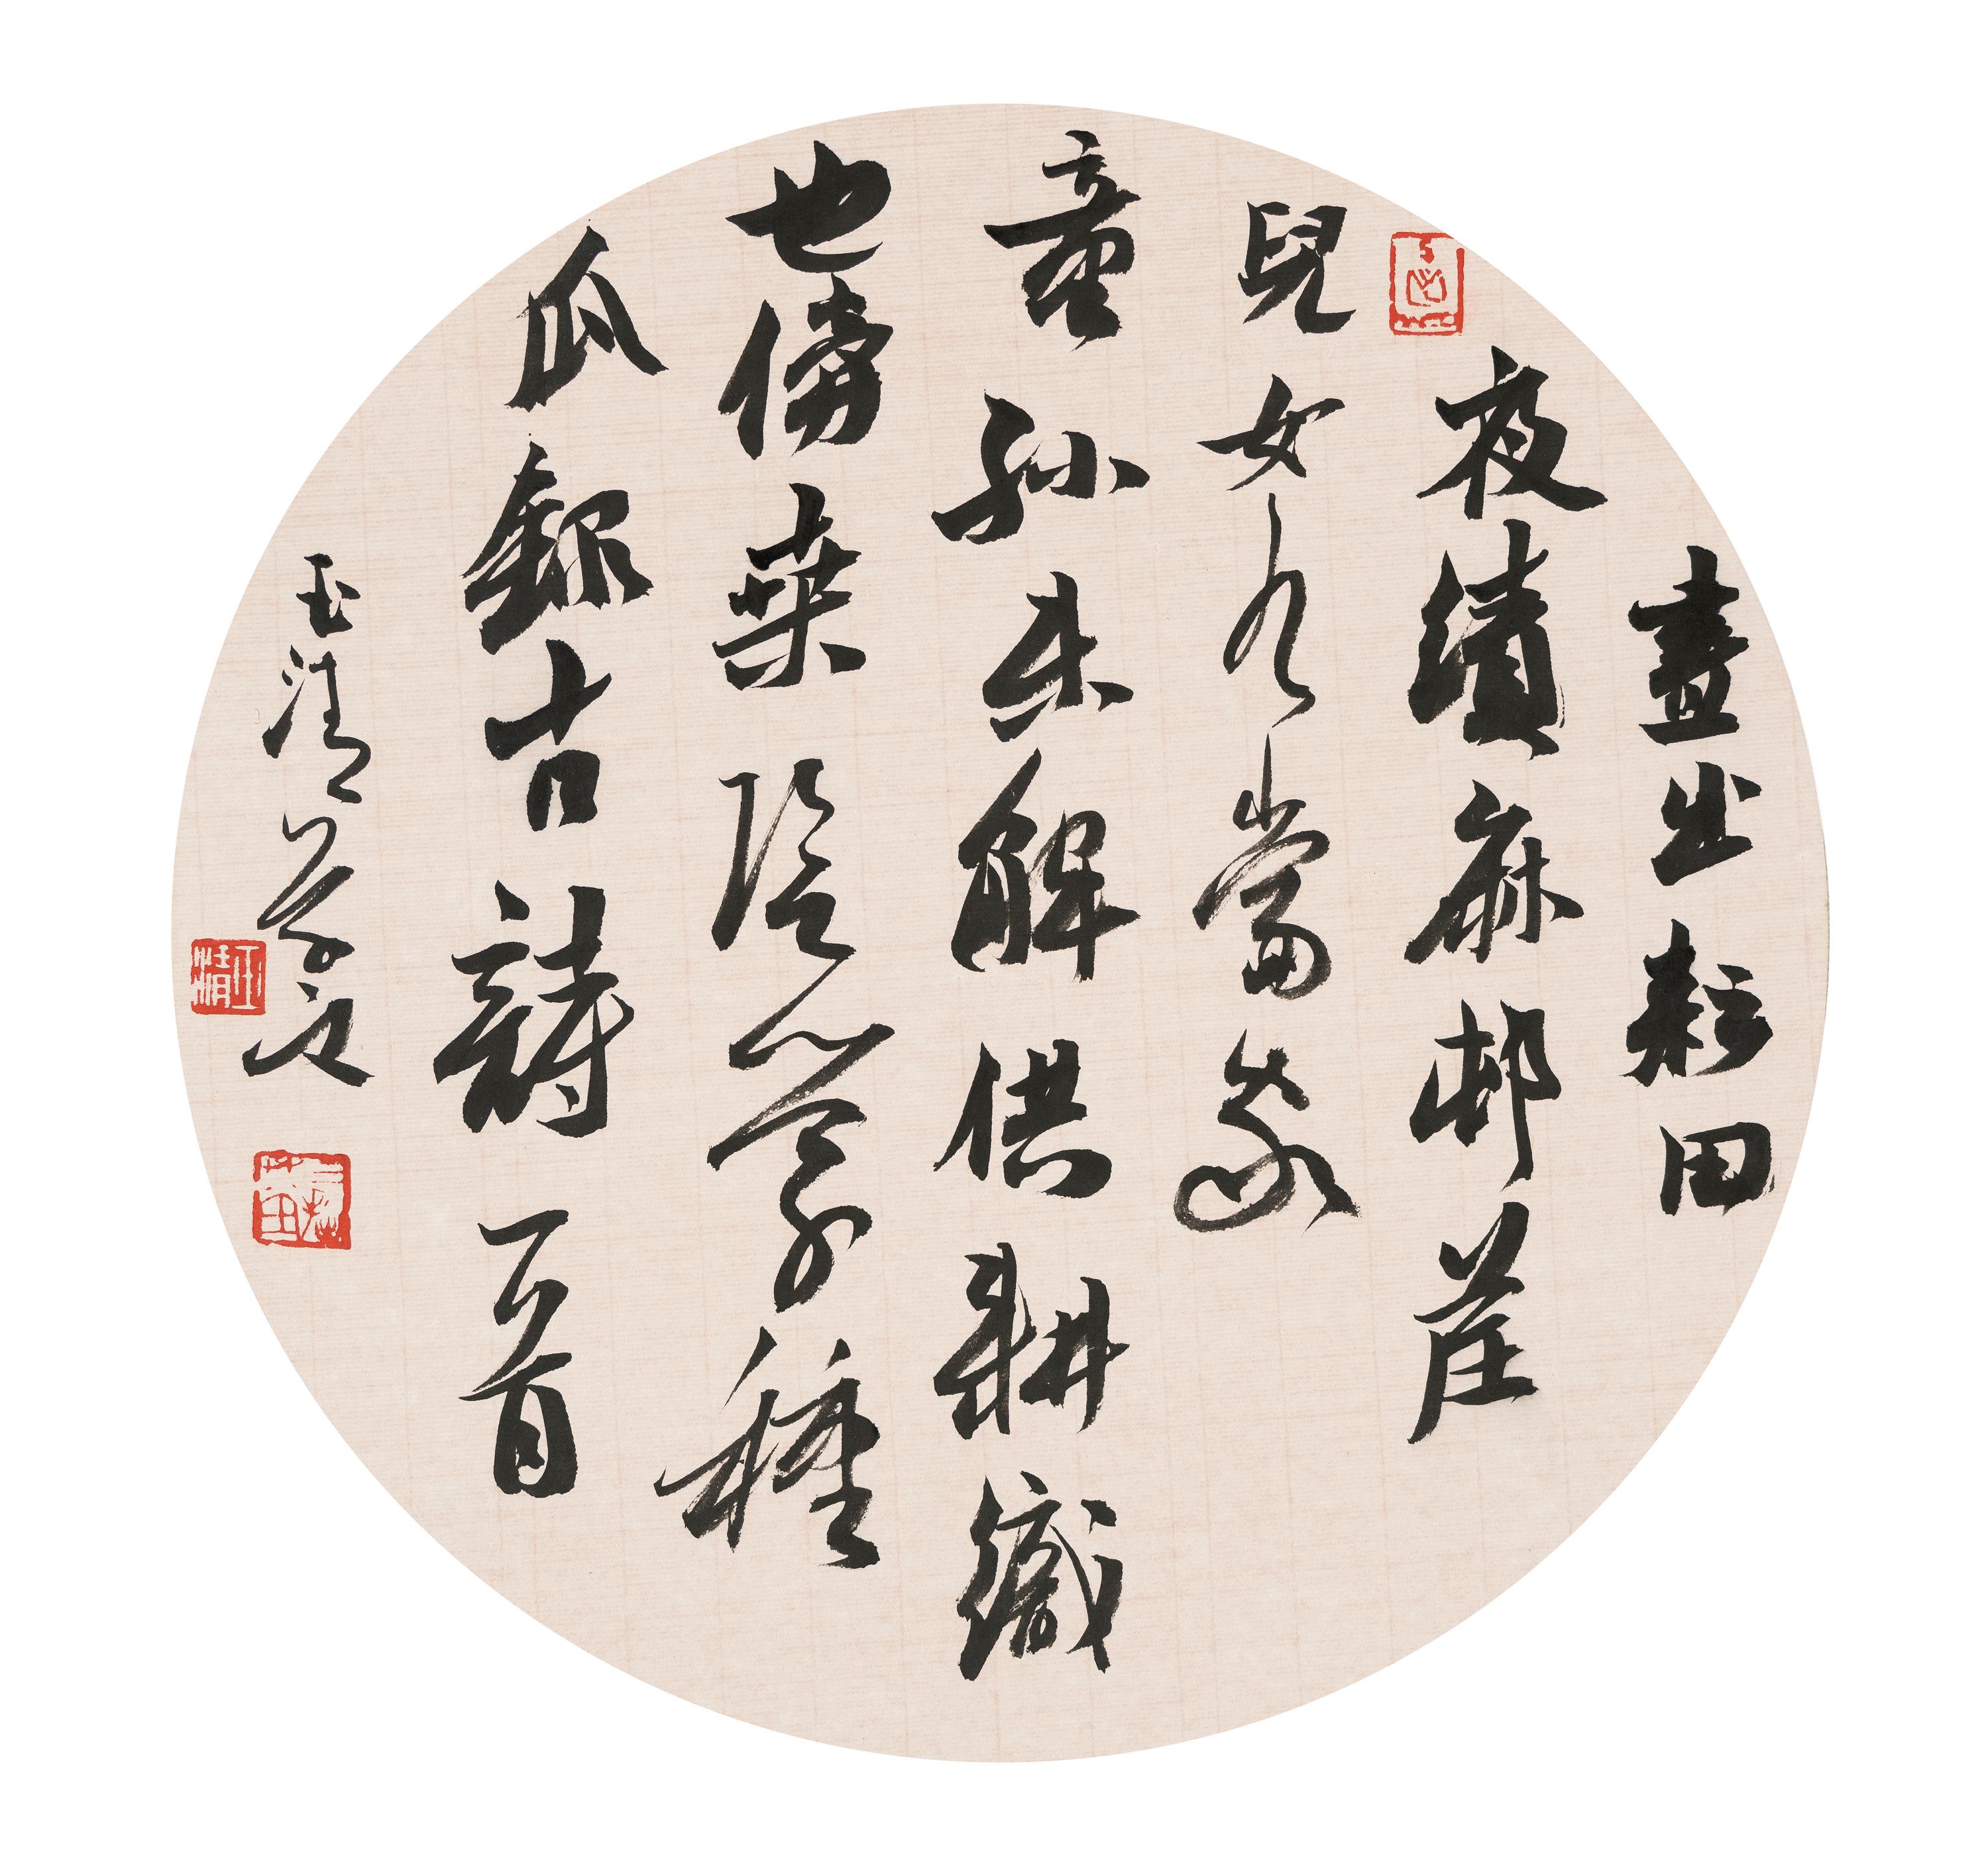 晝出耘田
夜績麻邨莊
兒女各當家
童孫未解供耕織
也傍桑陰學種
瓜錄古詩一首
玉清
玉清